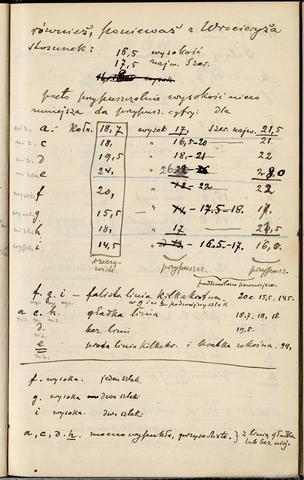 również, ponieważ z Wrocieryża
stosunek:
16,5 wysokość
17,5 najw. szer.
preto przypuszczalnie wysokość nieco
mniejsza da przypuszcz. cyfry: dla
a. Kołn. 18,7 wysok. 17, Szer. najw. 21,5
c 18, „ 16,5-20 21,
d 19,5 „ 18,-21 22
e 24, „ 28,0
f 20, „ 22
g 15,5 „ 14,-17,5-18. 17,
h 18, „ 17 21,5
i 14,5 „ 16,5-17. 16,0.
rzeczywiste. przypuszcz. przypuszcz.
f. g. i – falista linia kilkakrotna 20c. 15,5. 14,5.
a c. h. gładka linia 18.7, 18, 18.
d. bez linii 19,5.
e prosta linia kilkakr. i kratka ukośna. 24.
f. wysoka. jeden szlak.
g. wysoka dwa szlaki
i wysoka. dwa szlaki
a, c, d. h. mocno wypukłe, przysadziste. } z linią gładką
lub bez niej.